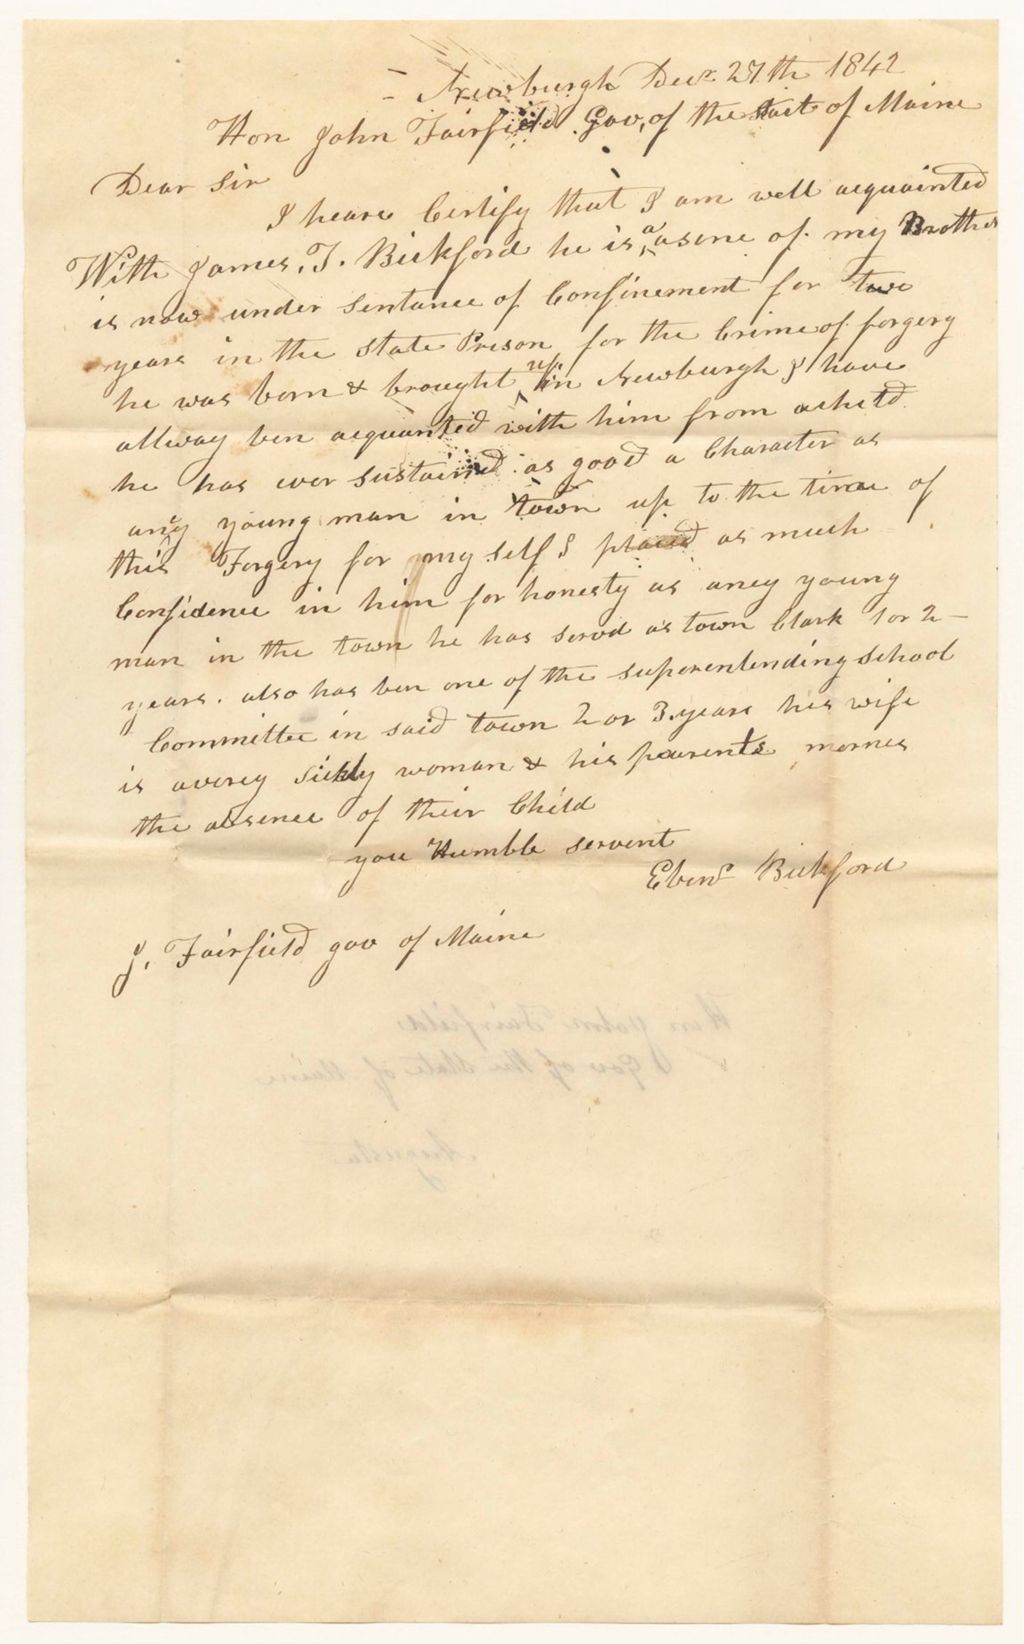 Newburgh Decr 27th 1842
Hon John Fairfield Gov, of the Stait of Maine
Dear Sir
I heare Certify that I am well acquainted
With James. T. Bickford he is a asone of my Brother
is now under sentance of Confinement for two
years in the State Prison for the Crime of forgery
he was born & brought up in Newburgh I have
allway ben acquanted with him from achild
he has ever sustained as good a Character as
any young man in town up to the time of
this Forgery for my self I placed as much
Confidence in him for honesty as aney young
man in the town he has servd as town Clark 1 or 2
years. also has ben one of the superentending School
Committee in said town 2 or 3 years his wife
is averey sickly woman & his parents mornes
the absence of their Child
you Humble servent
Ebenr Bickford
J. Fairfield gov of Maine
Hon John Fairfield
Gov of the State of Maine
Augusta